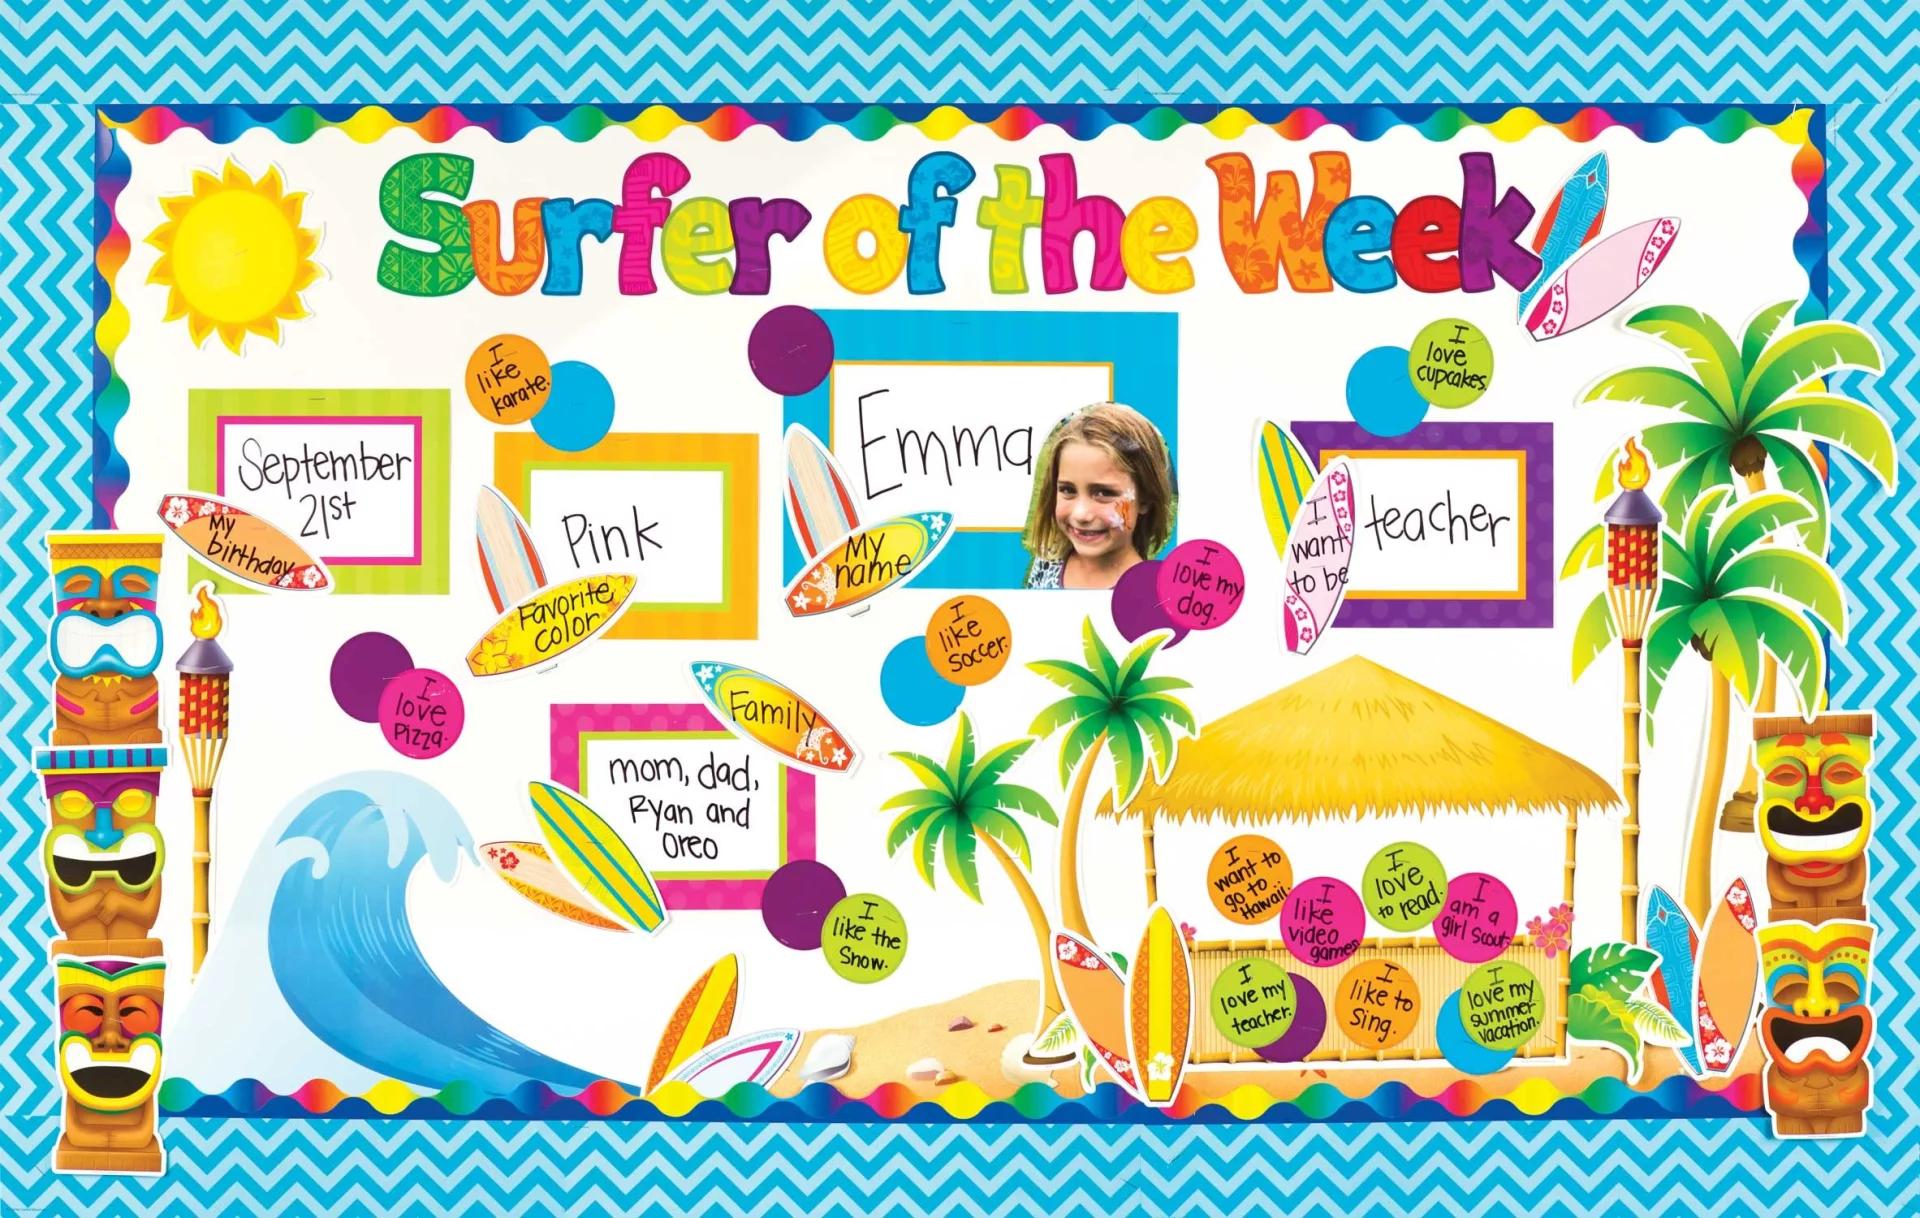 Surfer of the Week
I
like
karate.
I
love
cupcakes.
September
21st
My
birthday
Pink
Favorite
color
Emma
My
name
teacher
I
want
to be
I
love my
dog.
I
like
soccer.
I
love
Pizza.
Family
mom, dad,
Ryan and
Oreo
I
like the
Snow.
I
want to
go to
Hawaii.
I
like
video
games
I
love
to read.
I
am a
girl scout.
I
love my
teacher.
I
like to
Sing.
I
love my
summer
vacation.